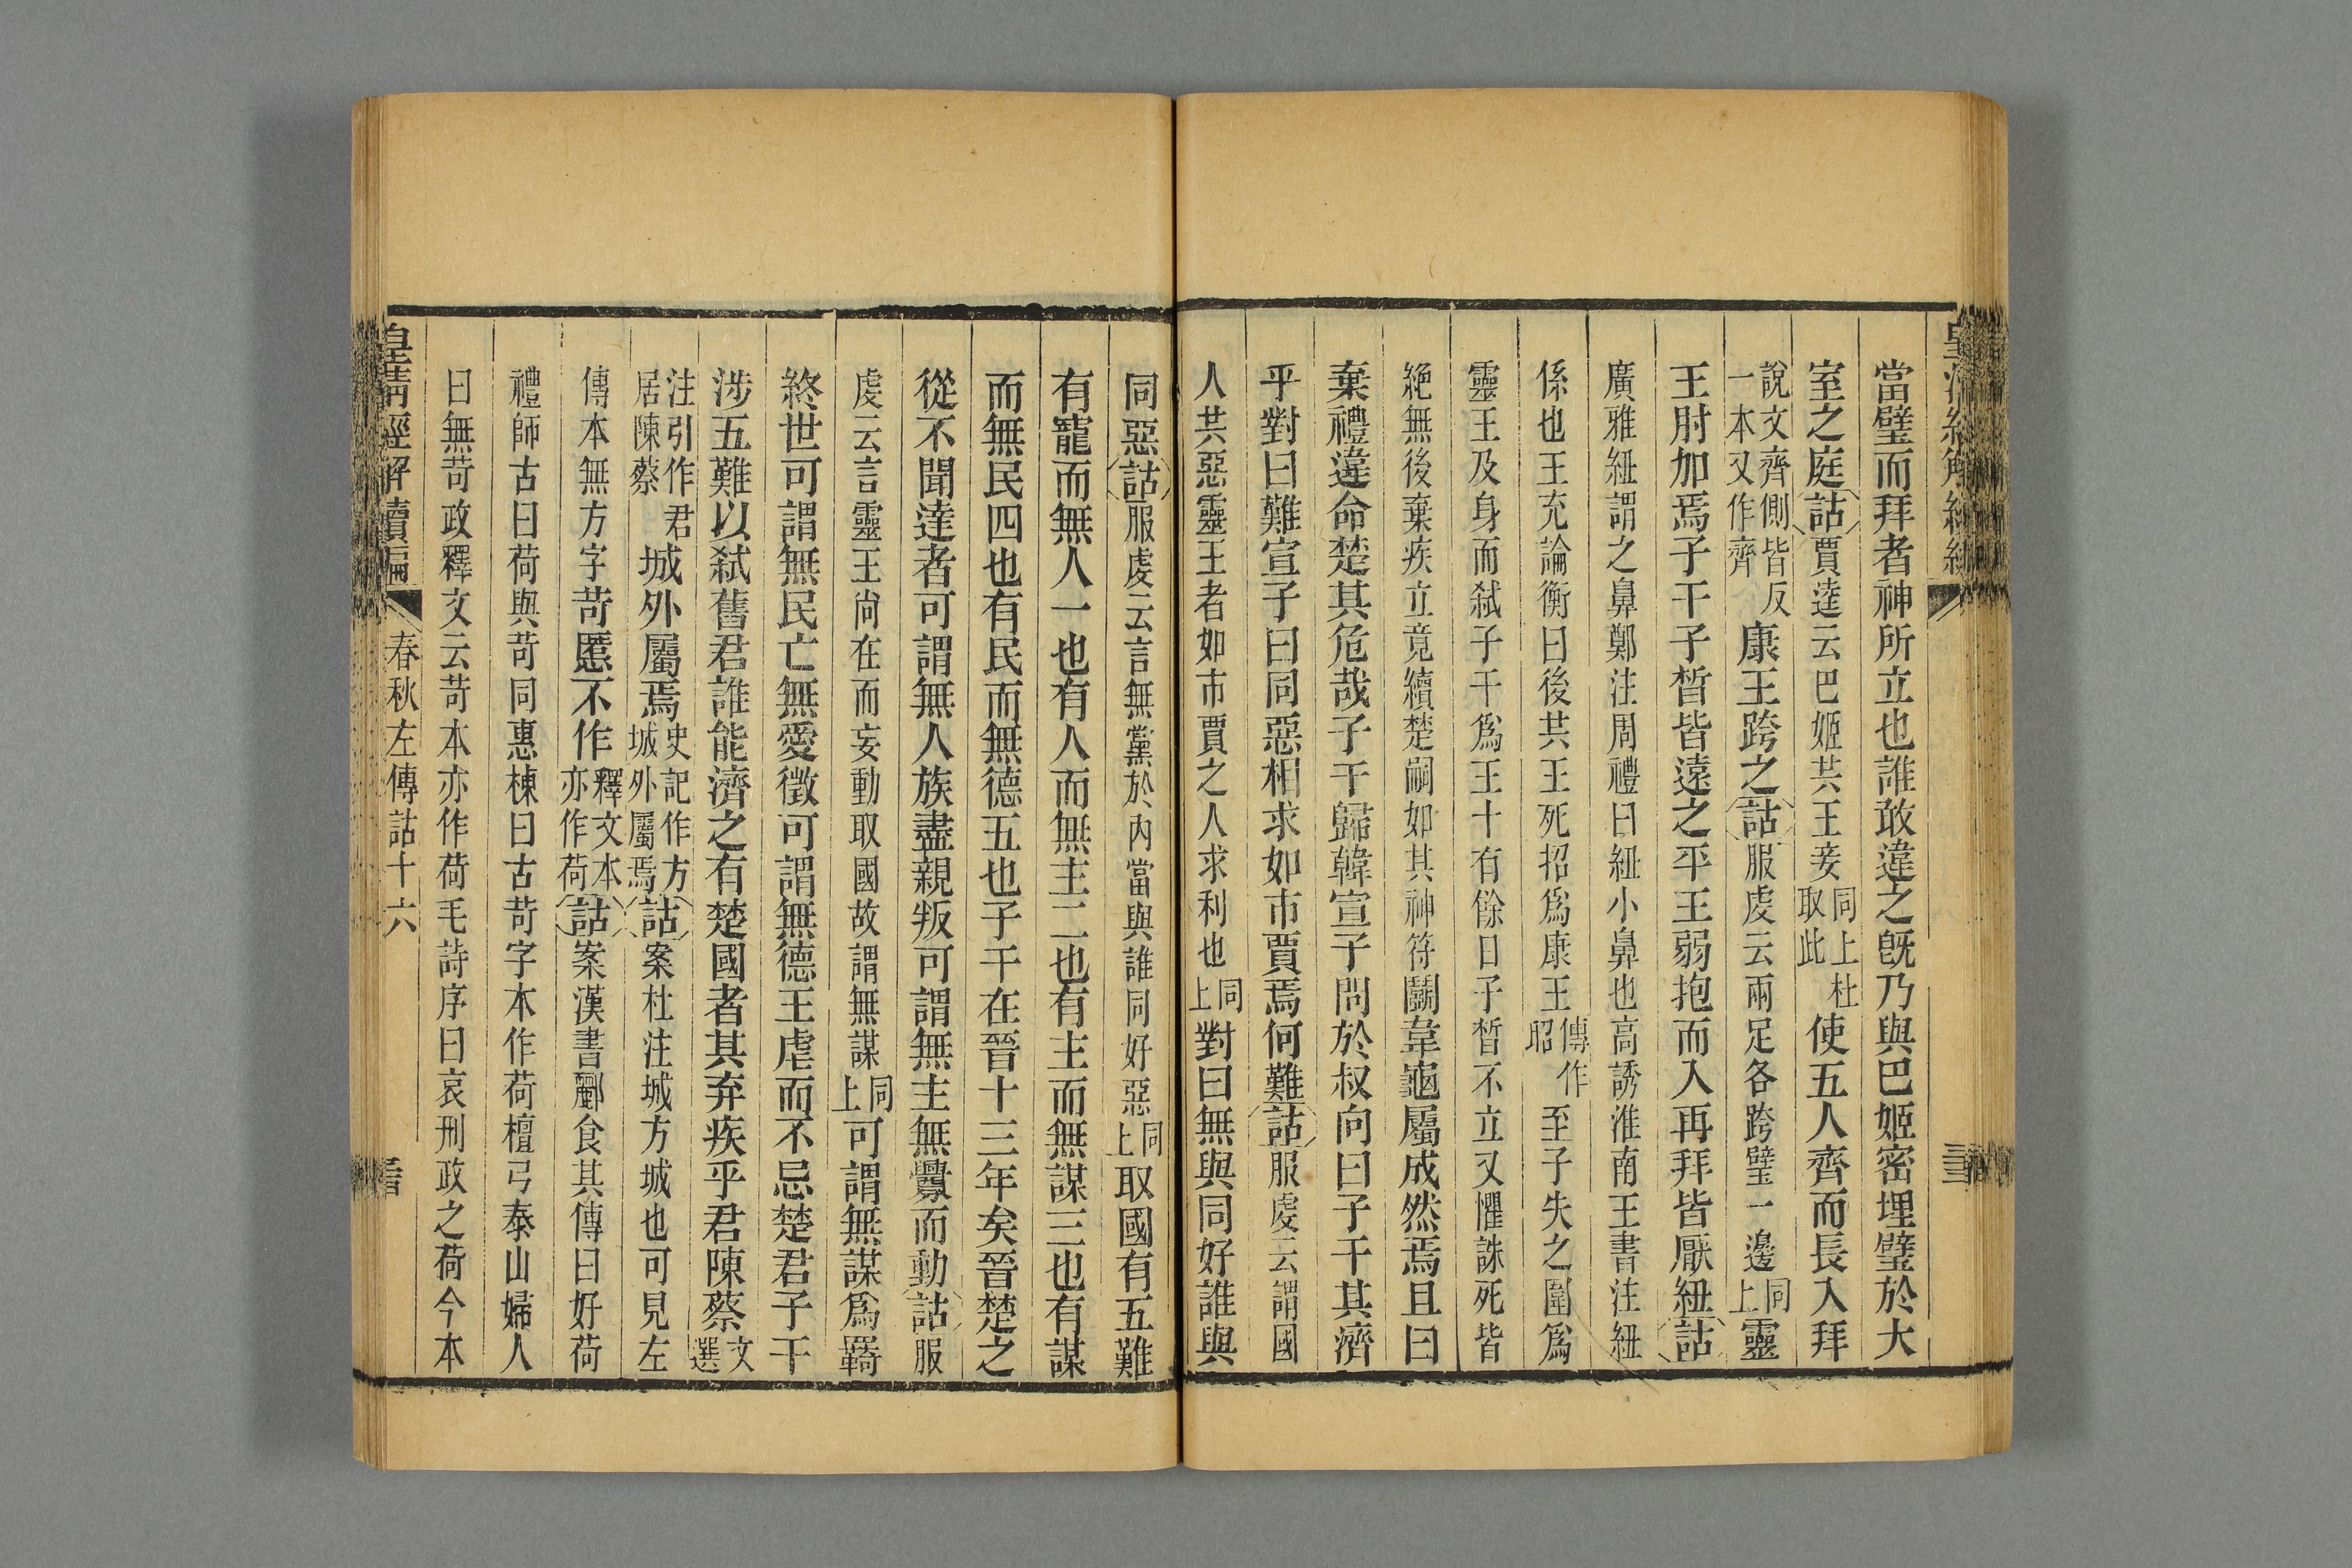 當璧而拜者神所立也誰敢違之旣乃與巴姬密埋璧於大
室之庭詁賈逵云巴姬共王妾同上杜取此使五人齊而長入拜
說文齊側皆反一本又作齊康王跨之詁服虔云兩足各跨璧一邊同上靈
王肘加焉子干子晳皆遠之平王弱抱而入再拜皆厭紐詁
廣雅紐謂之鼻鄭注周禮曰紐小鼻也高誘淮南王書注紐
係也王充論衡曰後共王死招爲康王傳作昭至子失之圍爲
靈王及身而弑子干爲王十有餘日子晳不立又懼誅死皆
絕無後棄疾立竟續楚嗣如其神符鬭韋龜屬成然焉且曰
棄禮違命楚其危哉子干歸韓宣子問於叔向曰子干其濟
乎對曰難宣子曰同惡相求如市賈焉何難詁服虔云謂國
人共惡靈王者如市賈之人求利也同上對曰無與同好誰與
同惡詁服虔云言無黨於內當與誰同好惡同上取國有五難
有寵而無人一也有人而無主二也有主而無謀三也有謀
而無民四也有民而無德五也子干在晉十三年矣晉楚之
從不聞達者可謂無人族盡親叛可謂無主無釁而動詁服
虔云言靈王尚在而妄動取國故謂無謀同上可謂無謀爲羇
終世可謂無民亡無愛徵可謂無德王虐而不忌楚君子干
涉五難以弑舊君誰能濟之有楚國者其弃疾乎君陳蔡文選
注引作君居陳蔡城外屬焉史記作方城外屬焉詁案杜注城方城也可見左
傳本無方字苛慝不作釋文本亦作荷詁案漢書酈食其傳曰好荷
禮師古曰荷與苛同惠棟曰古苛字本作荷檀弓泰山婦人
曰無苛政釋文云苛本亦作荷毛詩序曰哀刑政之荷今本
皇淸經解續編
春秋左傳詁十六